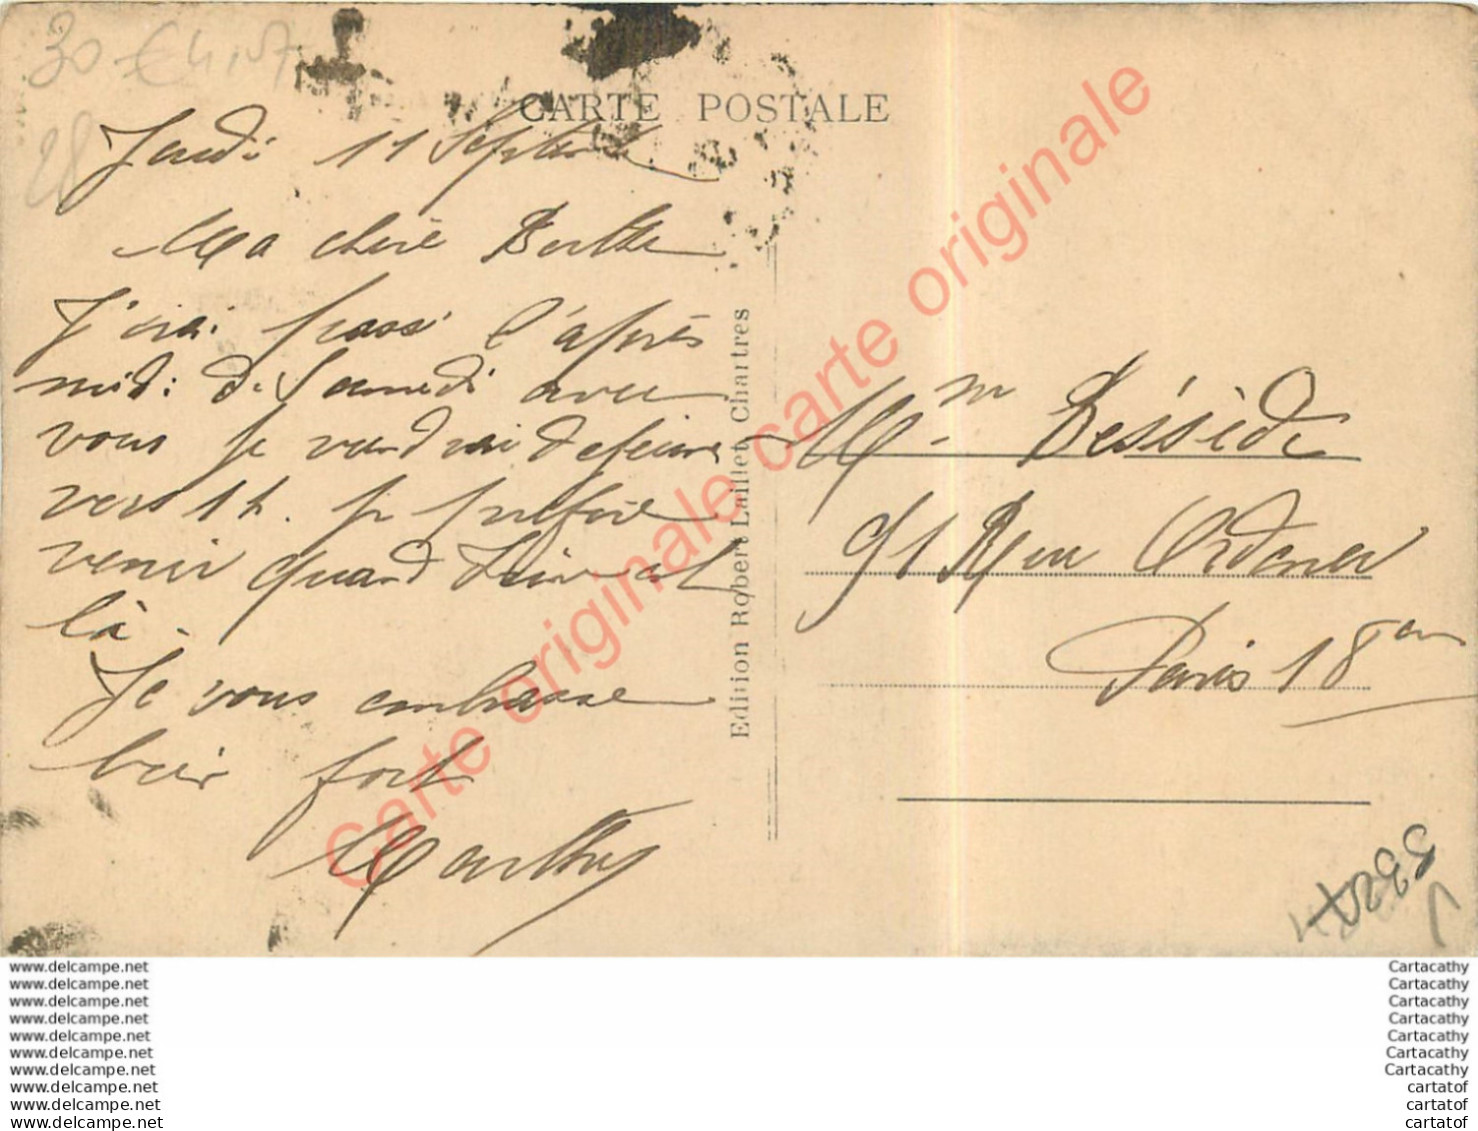 CARTE POSTALE
Jeudi 11 Septembre
Ma chère Berthe
J'irai passé l'après
midi de Samedi avec
vous je viendrai déjeuner
vers 1 h. je préfère
venir quand
là.
Je vous embrasse
bien fort
Marthe
Edition Robert Laillet Chartres
Mme Béssède
91 Rue Ordener
Paris 18em
Carte originale carte originale carte originale
30 €
28
www.delcampe.net
www.delcampe.net
www.delcampe.net
www.delcampe.net
www.delcampe.net
www.delcampe.net
www.delcampe.net
www.delcampe.net
www.delcampe.net
www.delcampe.net
Cartacathy
Cartacathy
Cartacathy
Cartacathy
Cartacathy
Cartacathy
Cartacathy
cartatof
cartatof
cartatof